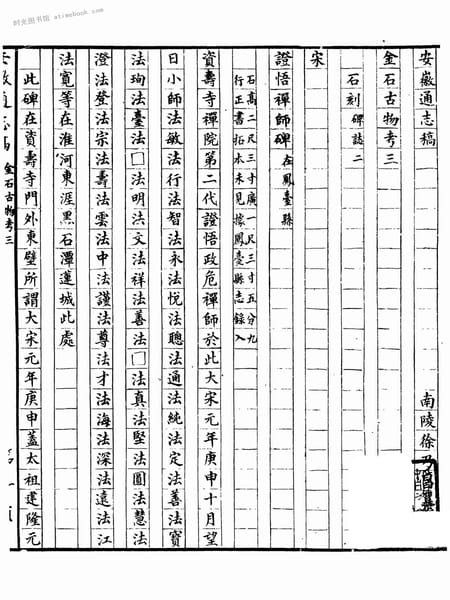 时光图书馆 · atimebook.com
安徽通志稿
金石古物考三
南陵徐乃昌
石刻碑誌二
宋
證悟禪師碑在鳳臺縣
石高二尺三寸廣一尺三寸五分九
行正書拓本未見據鳳臺縣志錄入
資壽寺禪院第二代證悟政危禪師於此大宋元年庚申十月望
日小師法敏法行法智法永法悅法聰法通法純法定法善法寶
法珣法臺法□法明法文法祥法善法□法真法堅法圓法慧法
澄法登法宗法壽法雲法中法謹法尊法才法海法深法遠法江
法寬等在淮河東涯黑石潭蓮城此處
此碑在資壽寺門外東壁所謂大宋元年庚申蓋太祖建隆元
安徽通志稿 金石古物考三